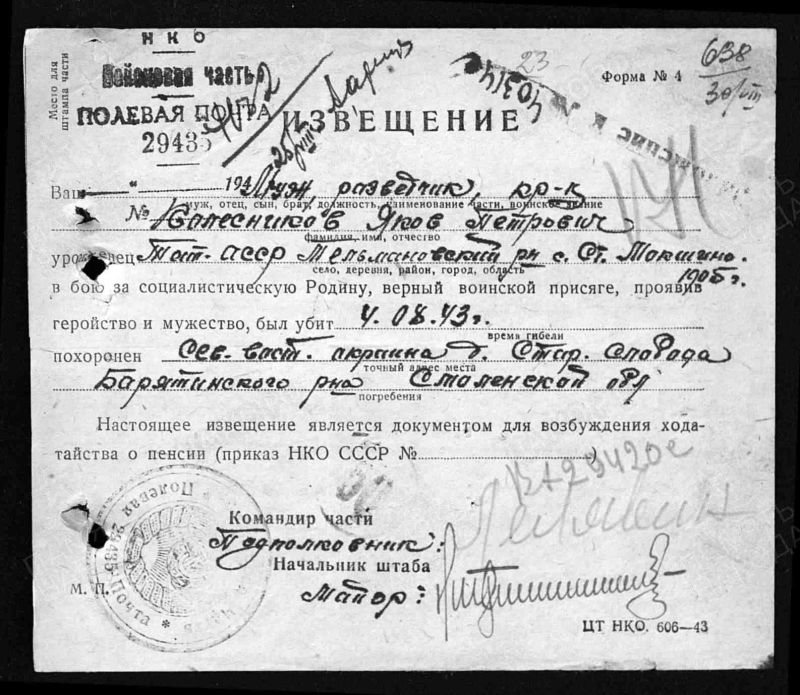 НКО
Войсковая часть
ПОЛЕВАЯ ПОЧТА
29435
Место для
штампа части
23
Форма № 4
638
40314
ИЗВЕЩЕНИЕ
Ваш 194 г. муж, разветчик, кр-к
муж, отец, сын, брат, должность, наименование части, воинское звание
№ Колесников Яков Петрович
фамилия, имя, отчество
уроженец Тат-АССР Мельмановский рн с. Ст. Мокшино.
село, деревня, район, город, область
1905 г.
в бою за социалистическую Родину, верный воинской присяге, проявив
геройство и мужество, был убит 4.08.43г.
время гибели
похоронен Сев-вост. окраина д. Стар. Слобода
точный адрес места
Барятинского рна Смоленской обл
погребения
Настоящее извещение является документом для возбуждения хода-
тайства о пенсии (приказ НКО СССР № )
Командир части
Подполковник:
Начальник штаба
Майор:
М. П.
Полевая Почта 29435
ЦТ НКО. 606—43